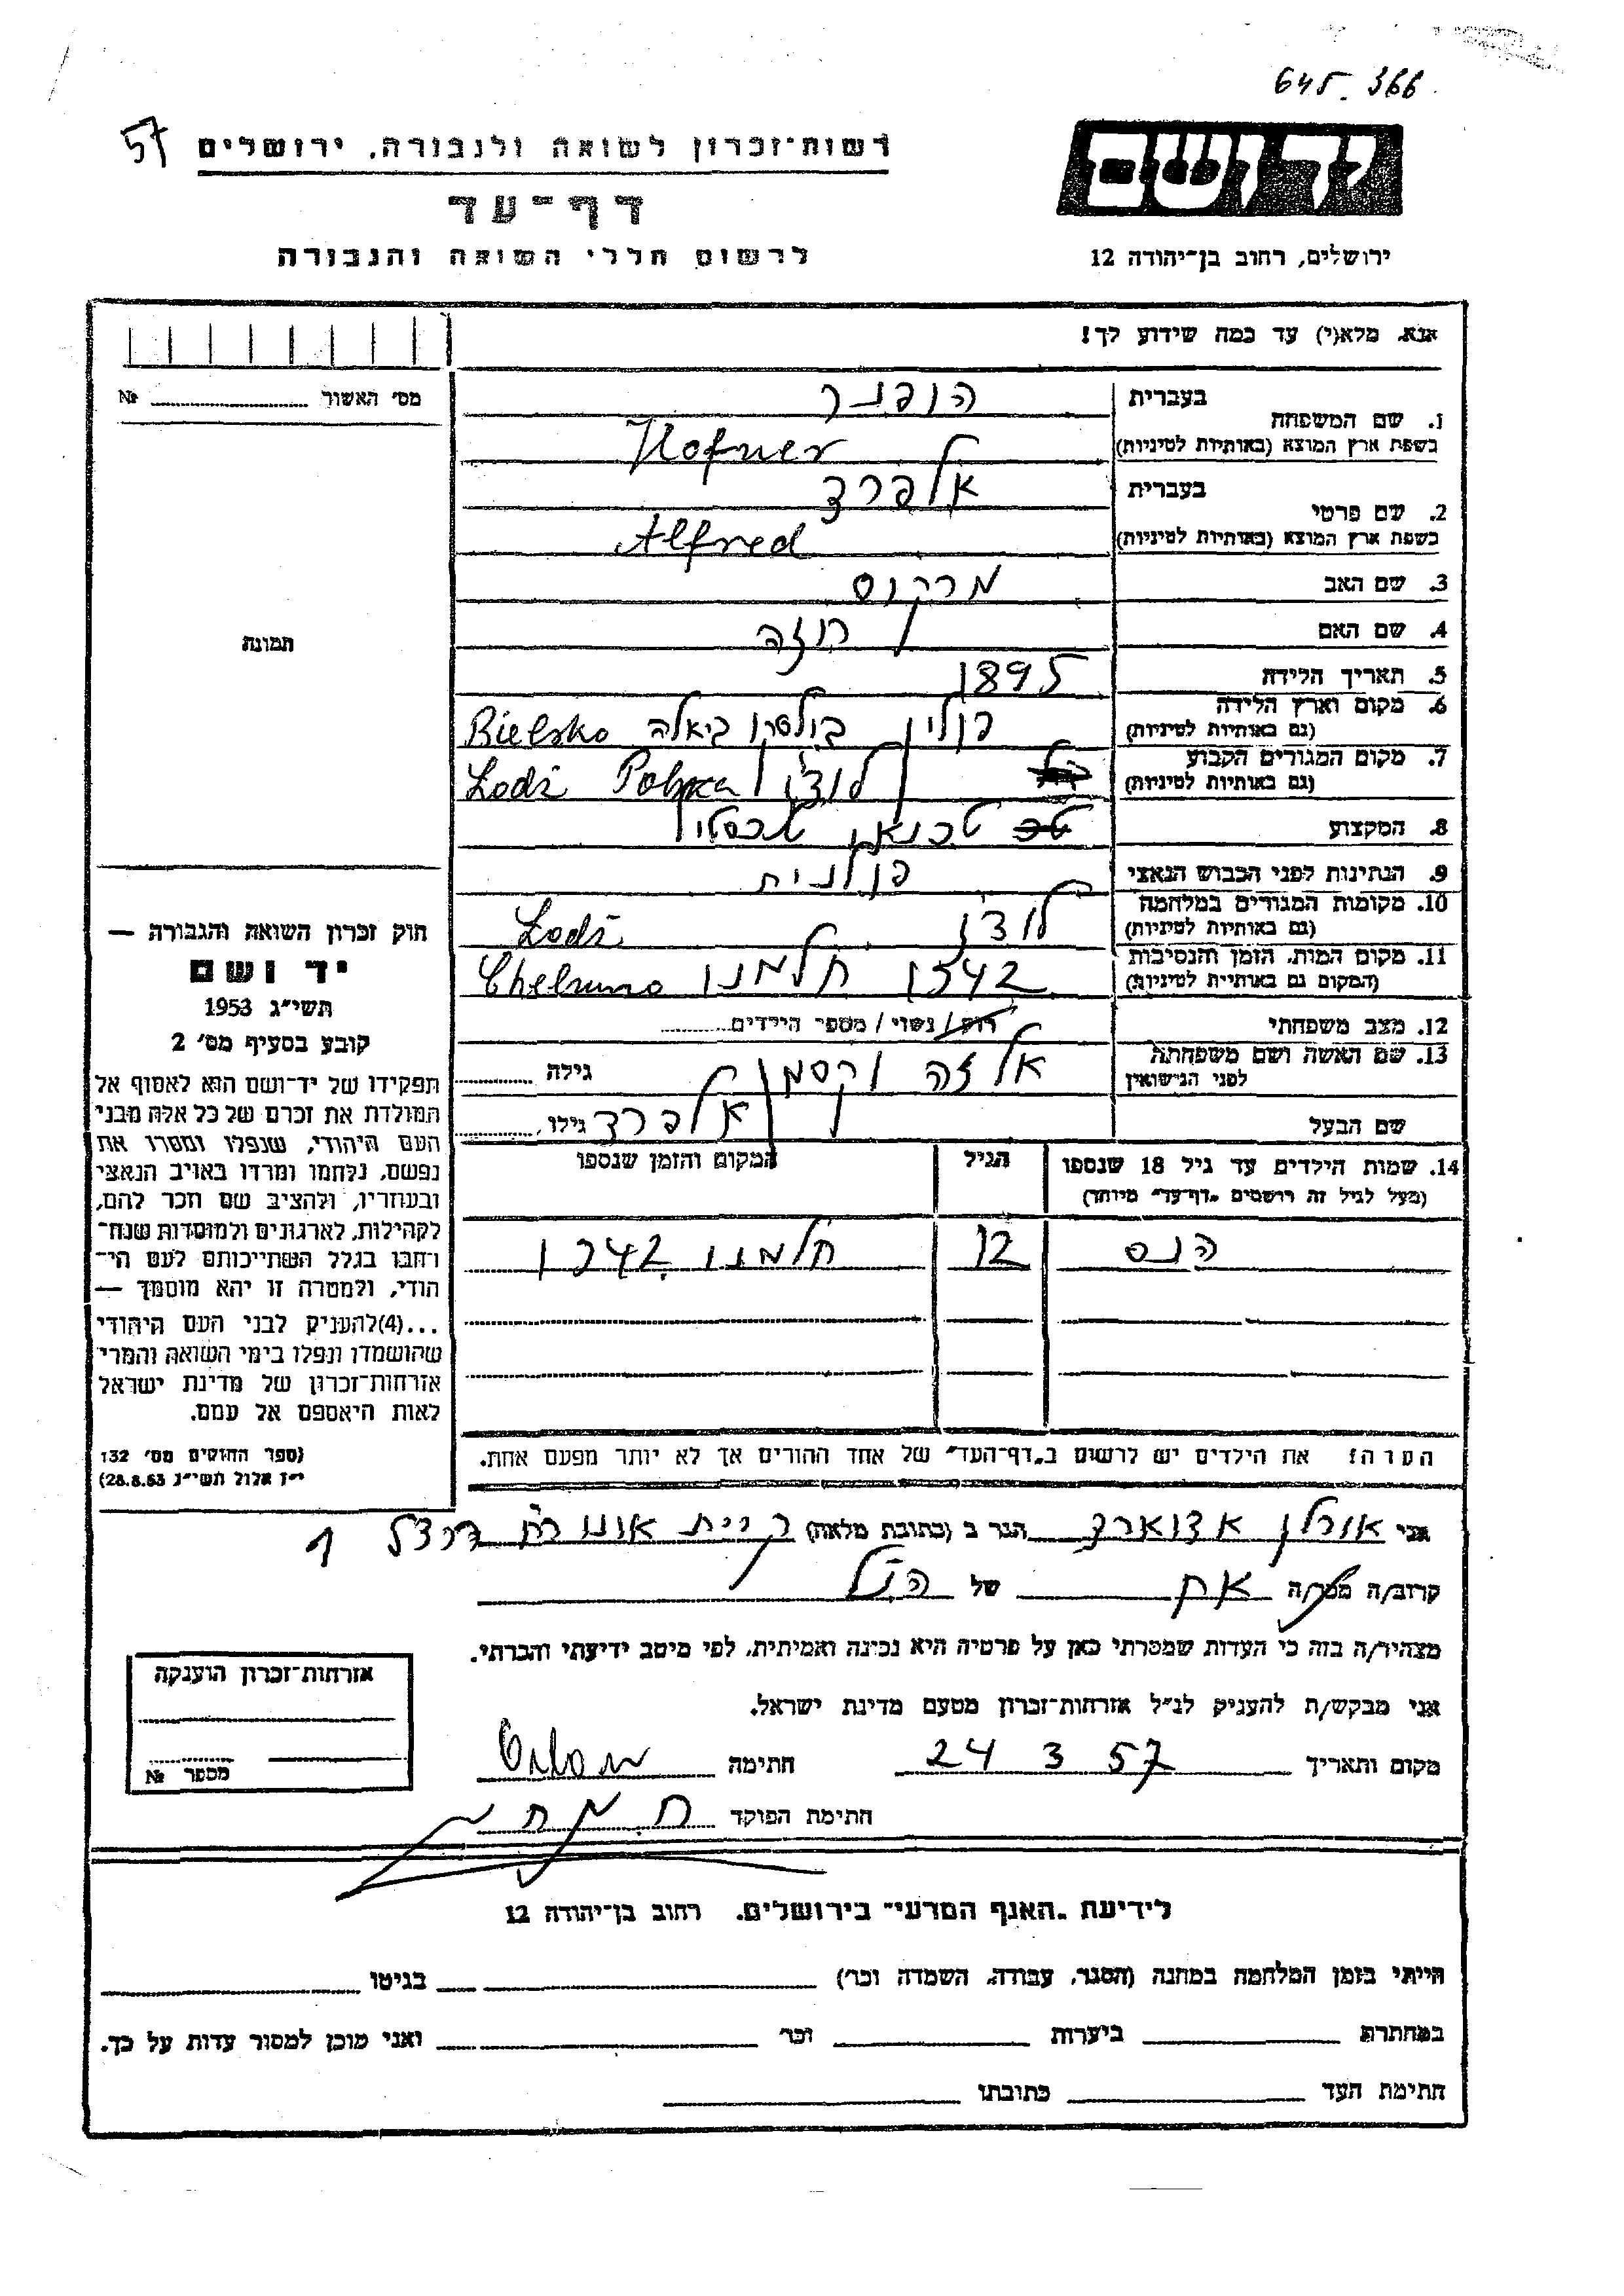 645.366
57
רשות־זכרון לשואה ולגבורה, ירושלים
יד ושם
דף־עד
לרשום חללי השואה והגבורה
ירושלים, רחוב בן־יהודה 12
אנא, מלא(י) עד כמה שידוע לך!
מס׳ האשור № 
תמונה
1. שם המשפחה בעברית הופנר
בשפת ארץ המוצא (באותיות לטיניות) Hofner
2. שם פרטי בעברית אלפרד
בשפת ארץ המוצא (באותיות לטיניות) Alfred
3. שם האב מרקוס
4. שם האם רוזה
5. תאריך הלידה 1895
6. מקום וארץ הלידה (גם באותיות לטיניות) פולין ביאלה Bielsko
7. מקום המגורים הקבוע (גם באותיות לטיניות) לודז׳ Lodź Polska
8. המקצוע טכנאי טכסטיל
9. הנתינות לפני הכבוש הנאצי פולנית
10. מקומות המגורים במלחמה (גם באותיות לטיניות) לודז׳ Lodź
11. מקום המות, הזמן והנסיבות (המקום גם באותיות לטיניות) 1942 חלמנו Chelmno
12. מצב משפחתי רווק/נשוי/מספר הילדים
13. שם האשה ושם משפחתה לפני הנישואין אלזה וקסמן גילה
שם הבעל אלפרד גילו
14. שמות הילדים עד גיל 18 שנספו הגיל המקום והזמן שנספו
(מעל לגיל זה רושמים „דף־עד” מיוחד)
הנס 12 חלמנו 1942
הערה! את הילדים יש לרשום ב„דף־העד” של אחד ההורים אך לא יותר מפעם אחת.
חוק זכרון השואה והגבורה —
יד ושם
תשי״ג 1953
קובע בסעיף מס׳ 2
תפקידו של יד־ושם הוא לאסוף אל
המולדת את זכרם של כל אלה מבני
העם היהודי, שנפלו ומסרו את
נפשם, נלחמו ומרדו באויב הנאצי
ובעוזריו, ולהציב שם וזכר להם,
לקהילות, לארגונים ולמוסדות שנח־
רבו בגלל השתייכותם לעם הי־
הודי, ולמטרה זו יהא מוסמך —
...(4)להעניק לבני העם היהודי
שהושמדו ונפלו בימי השואה והמרי
אזרחות־זכרון של מדינת ישראל
לאות היאספם אל עמם.
(ספר החוקים מס׳ 132
י״ז אלול תשי״ג 28.8.53)
אני אורלן אדוארד הגר ב (כתובת מלאה) קרית אונו רח׳ 1
קרוב/ה מכר/ה אח של הנ״ל
מצהיר/ה בזה כי העדות שמסרתי כאן על פרטיה היא נכונה ואמיתית, לפי מיטב ידיעתי והכרתי.
אני מבקש/ת להעניק לנ״ל אזרחות־זכרון מטעם מדינת ישראל.
מקום ותאריך 24 3 57 חתימה Orlan
חתימת הפוקד
אזרחות־זכרון הוענקה
מספר №
לידיעת „האגף המדעי” בירושלים, רחוב בן־יהודה 12
הייתי בזמן המלחמה במחנה (הסגר, עבודה, השמדה וכו׳) בגיטו
במחתרת ביערות וכו׳ ואני מוכן למסור עדות על כך.
חתימת העד כתובתו